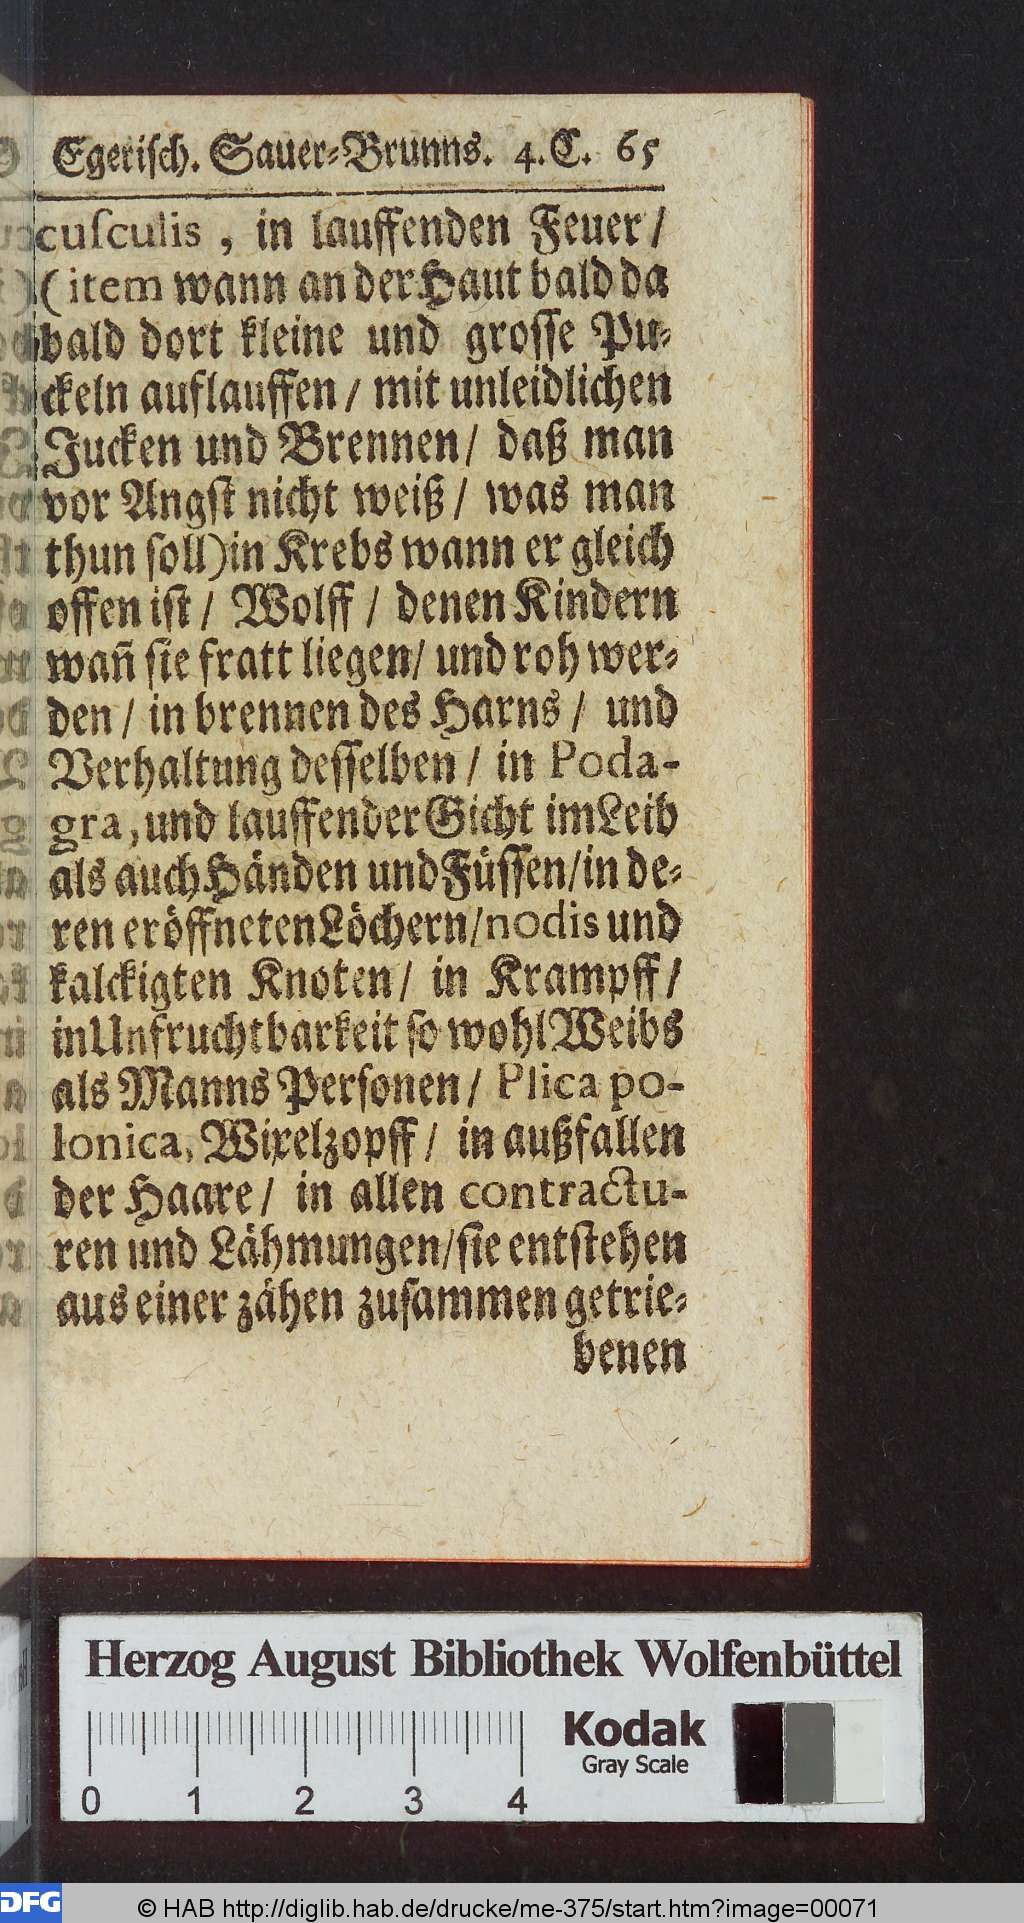 Egerisch. Sauer-Brunns. 4. C. 65
cusculis, in lauffenden Feuer /
(item wann an der Haut bald da
bald dort kleine und grosse Pu-
ckeln auflauffen / mit unleidlichen
Jucken und Brennen / daß man
vor Angst nicht weiß / was man
thun soll) in Krebs wann er gleich
offen ist / Wolff / denen Kindern
wañ sie fratt liegen / und roh wer-
den / in brennen des Harns / und
Verhaltung desselben / in Poda-
gra, und lauffender Gicht im Leib
als auch Händen und Füssen / in de-
ren eröffneten Löchern / nodis und
kalckigten Knoten / in Krampff /
in Unfruchtbarkeit so wohl Weibs
als Manns Personen / Plica po-
lonica, Wixelzopff / in außfallen
der Haare / in allen contractu-
ren und Lähmungen / sie entstehen
aus einer zähen zusammen getrie-
benen
Herzog August Bibliothek Wolfenbüttel
Kodak
Gray Scale
0 1 2 3 4
DFG
© HAB http://diglib.hab.de/drucke/me-375/start.htm?image=00071